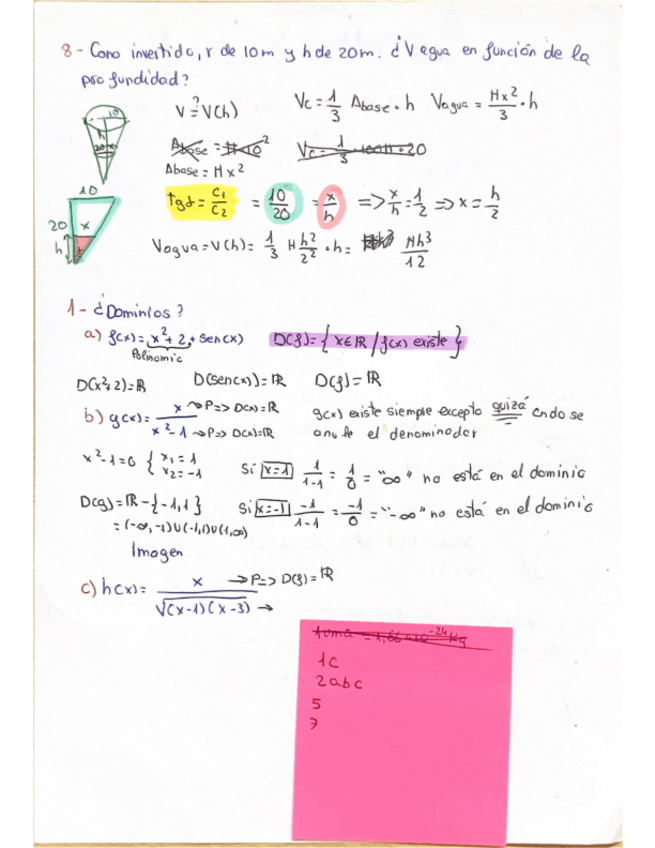 8- Cono invertido, r de 10m y h de 20m. ¿V agua en función de la
profundidad?
10
h
20
x
V ?= V(h)
Vc = 1/3 Abase · h
Vagua = πx²/3 · h
Abase = π·10²
Abase = πx²
10
20
x
h
tgα = C1/C2 = 10/20 = x/h => x/h = 1/2 => x = h/2
Vagua = V(h) = 1/3 π h²/2² · h = πh³/12
1- ¿Dominios?
a) f(x) = x²+2 + sen(x)
Polinomio
D(f) = {x∈ℝ / f(x) existe}
D(x²+2) = ℝ D(sen(x)) = ℝ D(f) = ℝ
b) g(x) = x/(x²-1)
→ P => D(x) = ℝ
→ P => D(x) = ℝ
g(x) existe siempre excepto quizá cndo se
anule el denominador
x²-1=0 { x₁ = 1 x₂ = -1
Si x=1 1/(1-1) = 1/0 = "∞" no está en el dominio
D(g) = ℝ - {-1,1}
Si x=-1 -1/(1-1) = -1/0 = "-∞" no está en el dominio
= (-∞,-1)∪(-1,1)∪(1,∞)
Imagen
c) h(x) = x/√((x-1)(x-3))
→ P => D(f) = ℝ
→
1uma = 1,66·10⁻²⁴ kg
1c
2abc
5
7